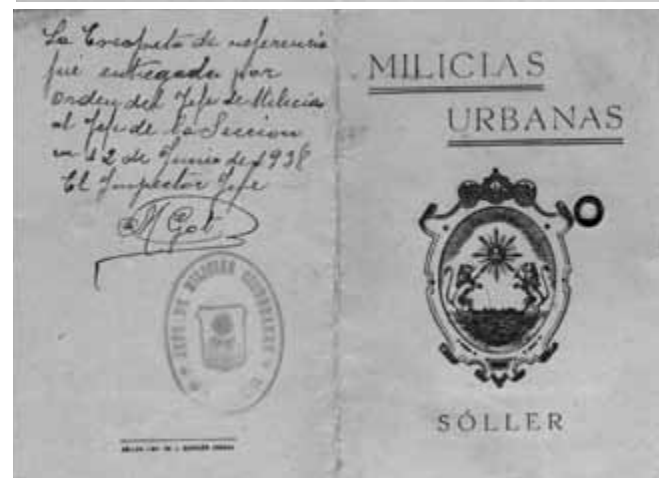 La Escopeta de referencia
fué entregada por
orden del Jefe de Milicia
al Jefe de la Seccion
en 12 de Junio de 1938
El Inspector Jefe
MILICIAS
URBANAS
SÓLLER